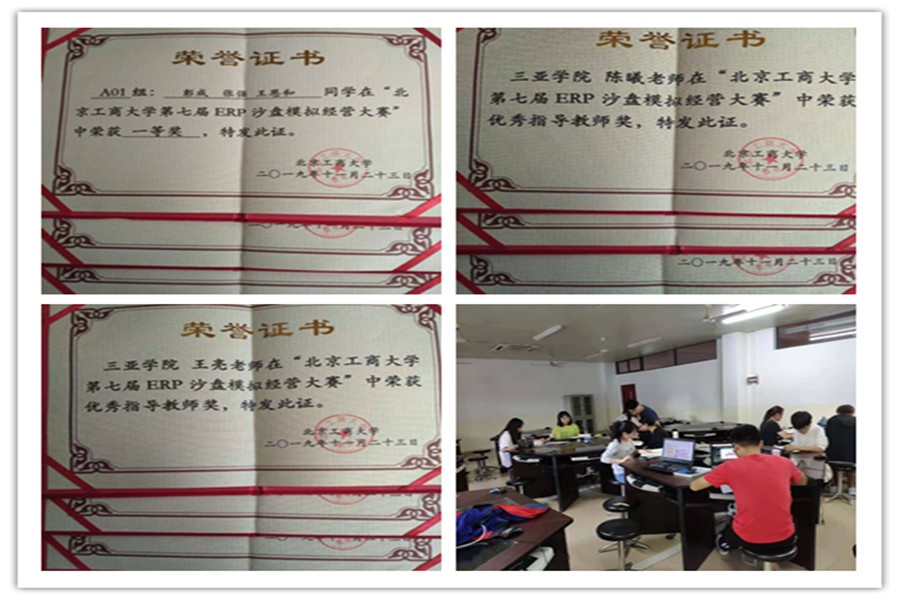 荣誉证书
A01 组： 彭成 张强 王思和 同学在“北
京工商大学第七届 ERP 沙盘模拟经营大赛”
中荣获 一等奖 ，特发此证。
北京工商大学
二〇一九年十一月二十三日
荣誉证书
三亚学院 陈曦老师在“北京工商大学
第七届 ERP 沙盘模拟经营大赛”中荣获
优秀指导教师奖，特发此证。
北京工商大学
二〇一九年十一月二十三日
二〇一九年十一月二十三日
荣誉证书
三亚学院 王亮老师在“北京工商大学
第七届 ERP 沙盘模拟经营大赛”中荣获
优秀指导教师奖，特发此证。
北京工商大学
二〇一九年十一月二十三日